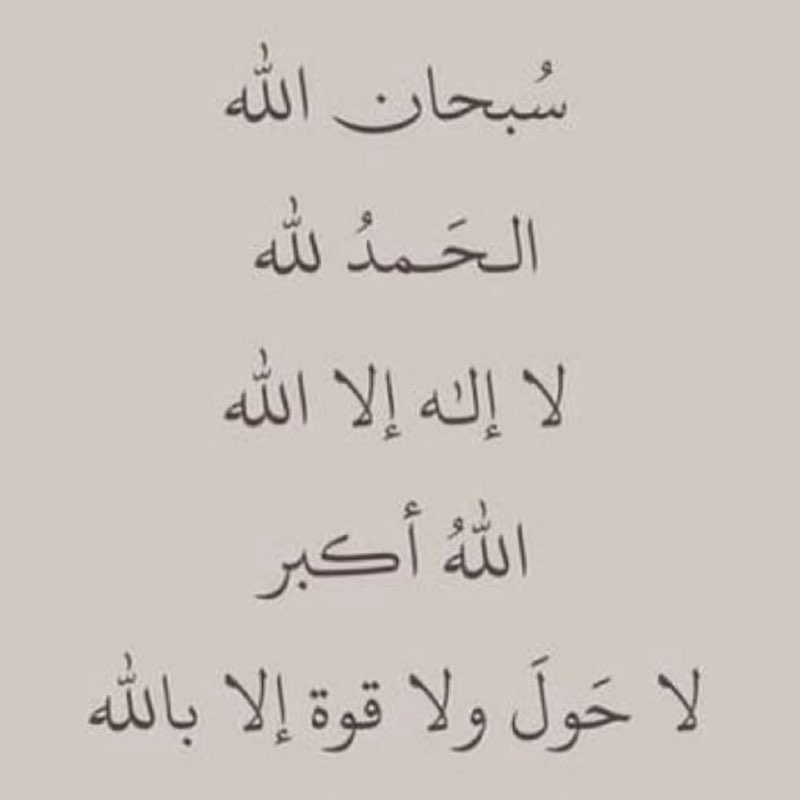 سُبحان الله
الـحَـمـدُ لله
لا إلـٰه إلا الله
اللهُ أكبر
لا حَولَ ولا قوة إلا بالله